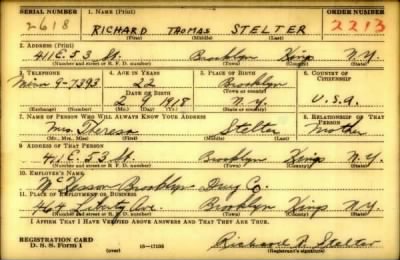 SERIAL NUMBER 1. NAME (Print) ORDER NUMBER
2618 RICHARD THOMAS STELTER 2213
(First) (Middle) (Last)
2. ADDRESS (Print)
411 E. 53 St. Brooklyn Kings N.Y.
(Number and street or R. F. D. number) (Town) (County) (State)
3. TELEPHONE 4. AGE IN YEARS 5. PLACE OF BIRTH 6. COUNTRY OF CITIZENSHIP
9-7393 22 Brooklyn
DATE OF BIRTH (Town or county)
2 9 1918 N.Y. U.S.A.
(Exchange) (Number) (Mo.) (Day) (Yr.) (State or country)
7. NAME OF PERSON WHO WILL ALWAYS KNOW YOUR ADDRESS 8. RELATIONSHIP OF THAT PERSON
Mrs. Theresa Stelter Mother
(Mr., Mrs., Miss) (First) (Middle) (Last)
9. ADDRESS OF THAT PERSON
411 E. 53 St. Brooklyn Kings N.Y.
(Number and street or R. F. D. number) (Town) (County) (State)
10. EMPLOYER'S NAME
McKesson Brooklyn Drug Co.
11. PLACE OF EMPLOYMENT OR BUSINESS
464 Liberty Ave. Brooklyn Kings N.Y.
(Number and street or R. F. D. number) (Town) (County) (State)
I AFFIRM THAT I HAVE VERIFIED ABOVE ANSWERS AND THAT THEY ARE TRUE.
REGISTRATION CARD
D. S. S. FORM 1 (over) 16-17105 Richard Stelter
(Registrant's signature)